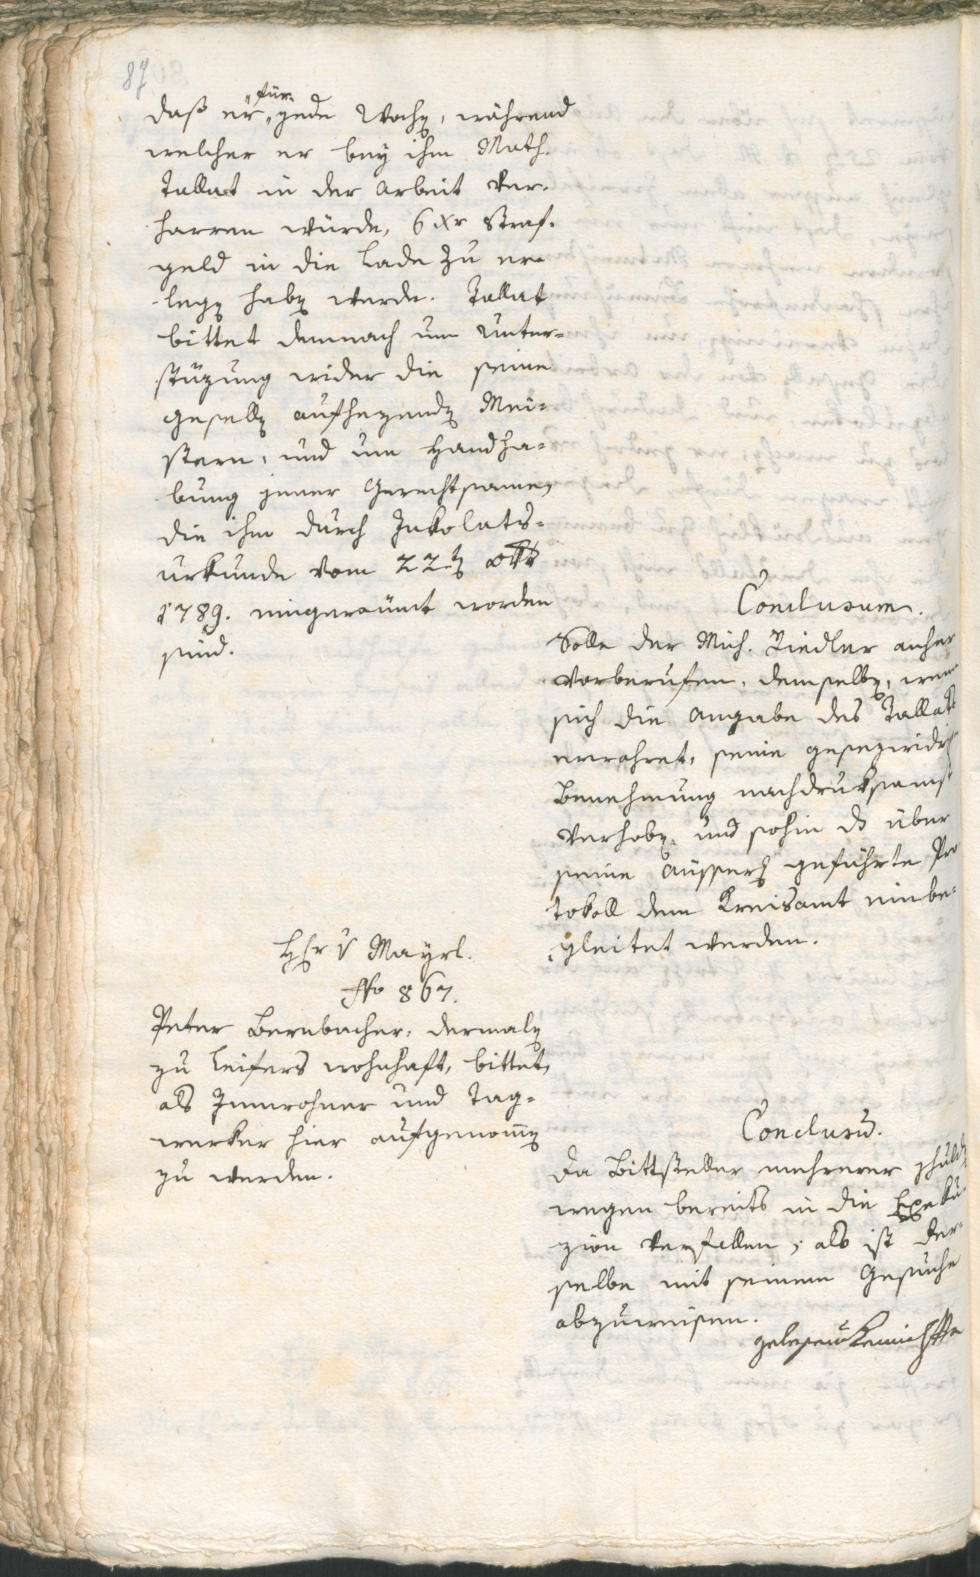 87
für
daß er jede Wochen, während
welcher er bey ihm Math.
Tallat in der Arbeit ver-
harren würde, 6 xr Straf-
geld in die Lade zu er-
legen haben werde. Tallat
bittet demnach um Unter-
stüzung wider die seine
Gesellen aufhezenden Mei-
stern, und um Handha-
bung jener Gerechtsame,
die ihm durch Inkolats-
urkunde vom 22ten
1789. eingeräumt worden
sind.
Conclusum.
Solle der Mich. Riedler anher
vorberufen, demselben, wenn
sich die Angabe des Tallats
erwahret, seine gesezwidrige
Benehmung nachdruksamst
verhoben, und sohin das über
seine Äusserung geführte Pro
tokoll dem Kreisamt einbe-
gleitet werden.
Hr v Mayrl.
No 867.
Peter Bernbacher, dermalen
zu Leifers wohnhaft, bittet,
als Innwohner und Tag-
werker hier aufgenommen
zu werden.
Conclusum.
Da Bittsteller mehrerer Schulden
wegen bereits in die Exeku-
zion verfallen, als ist der-
selbe mit seinem Gesuche
abzuweisen.